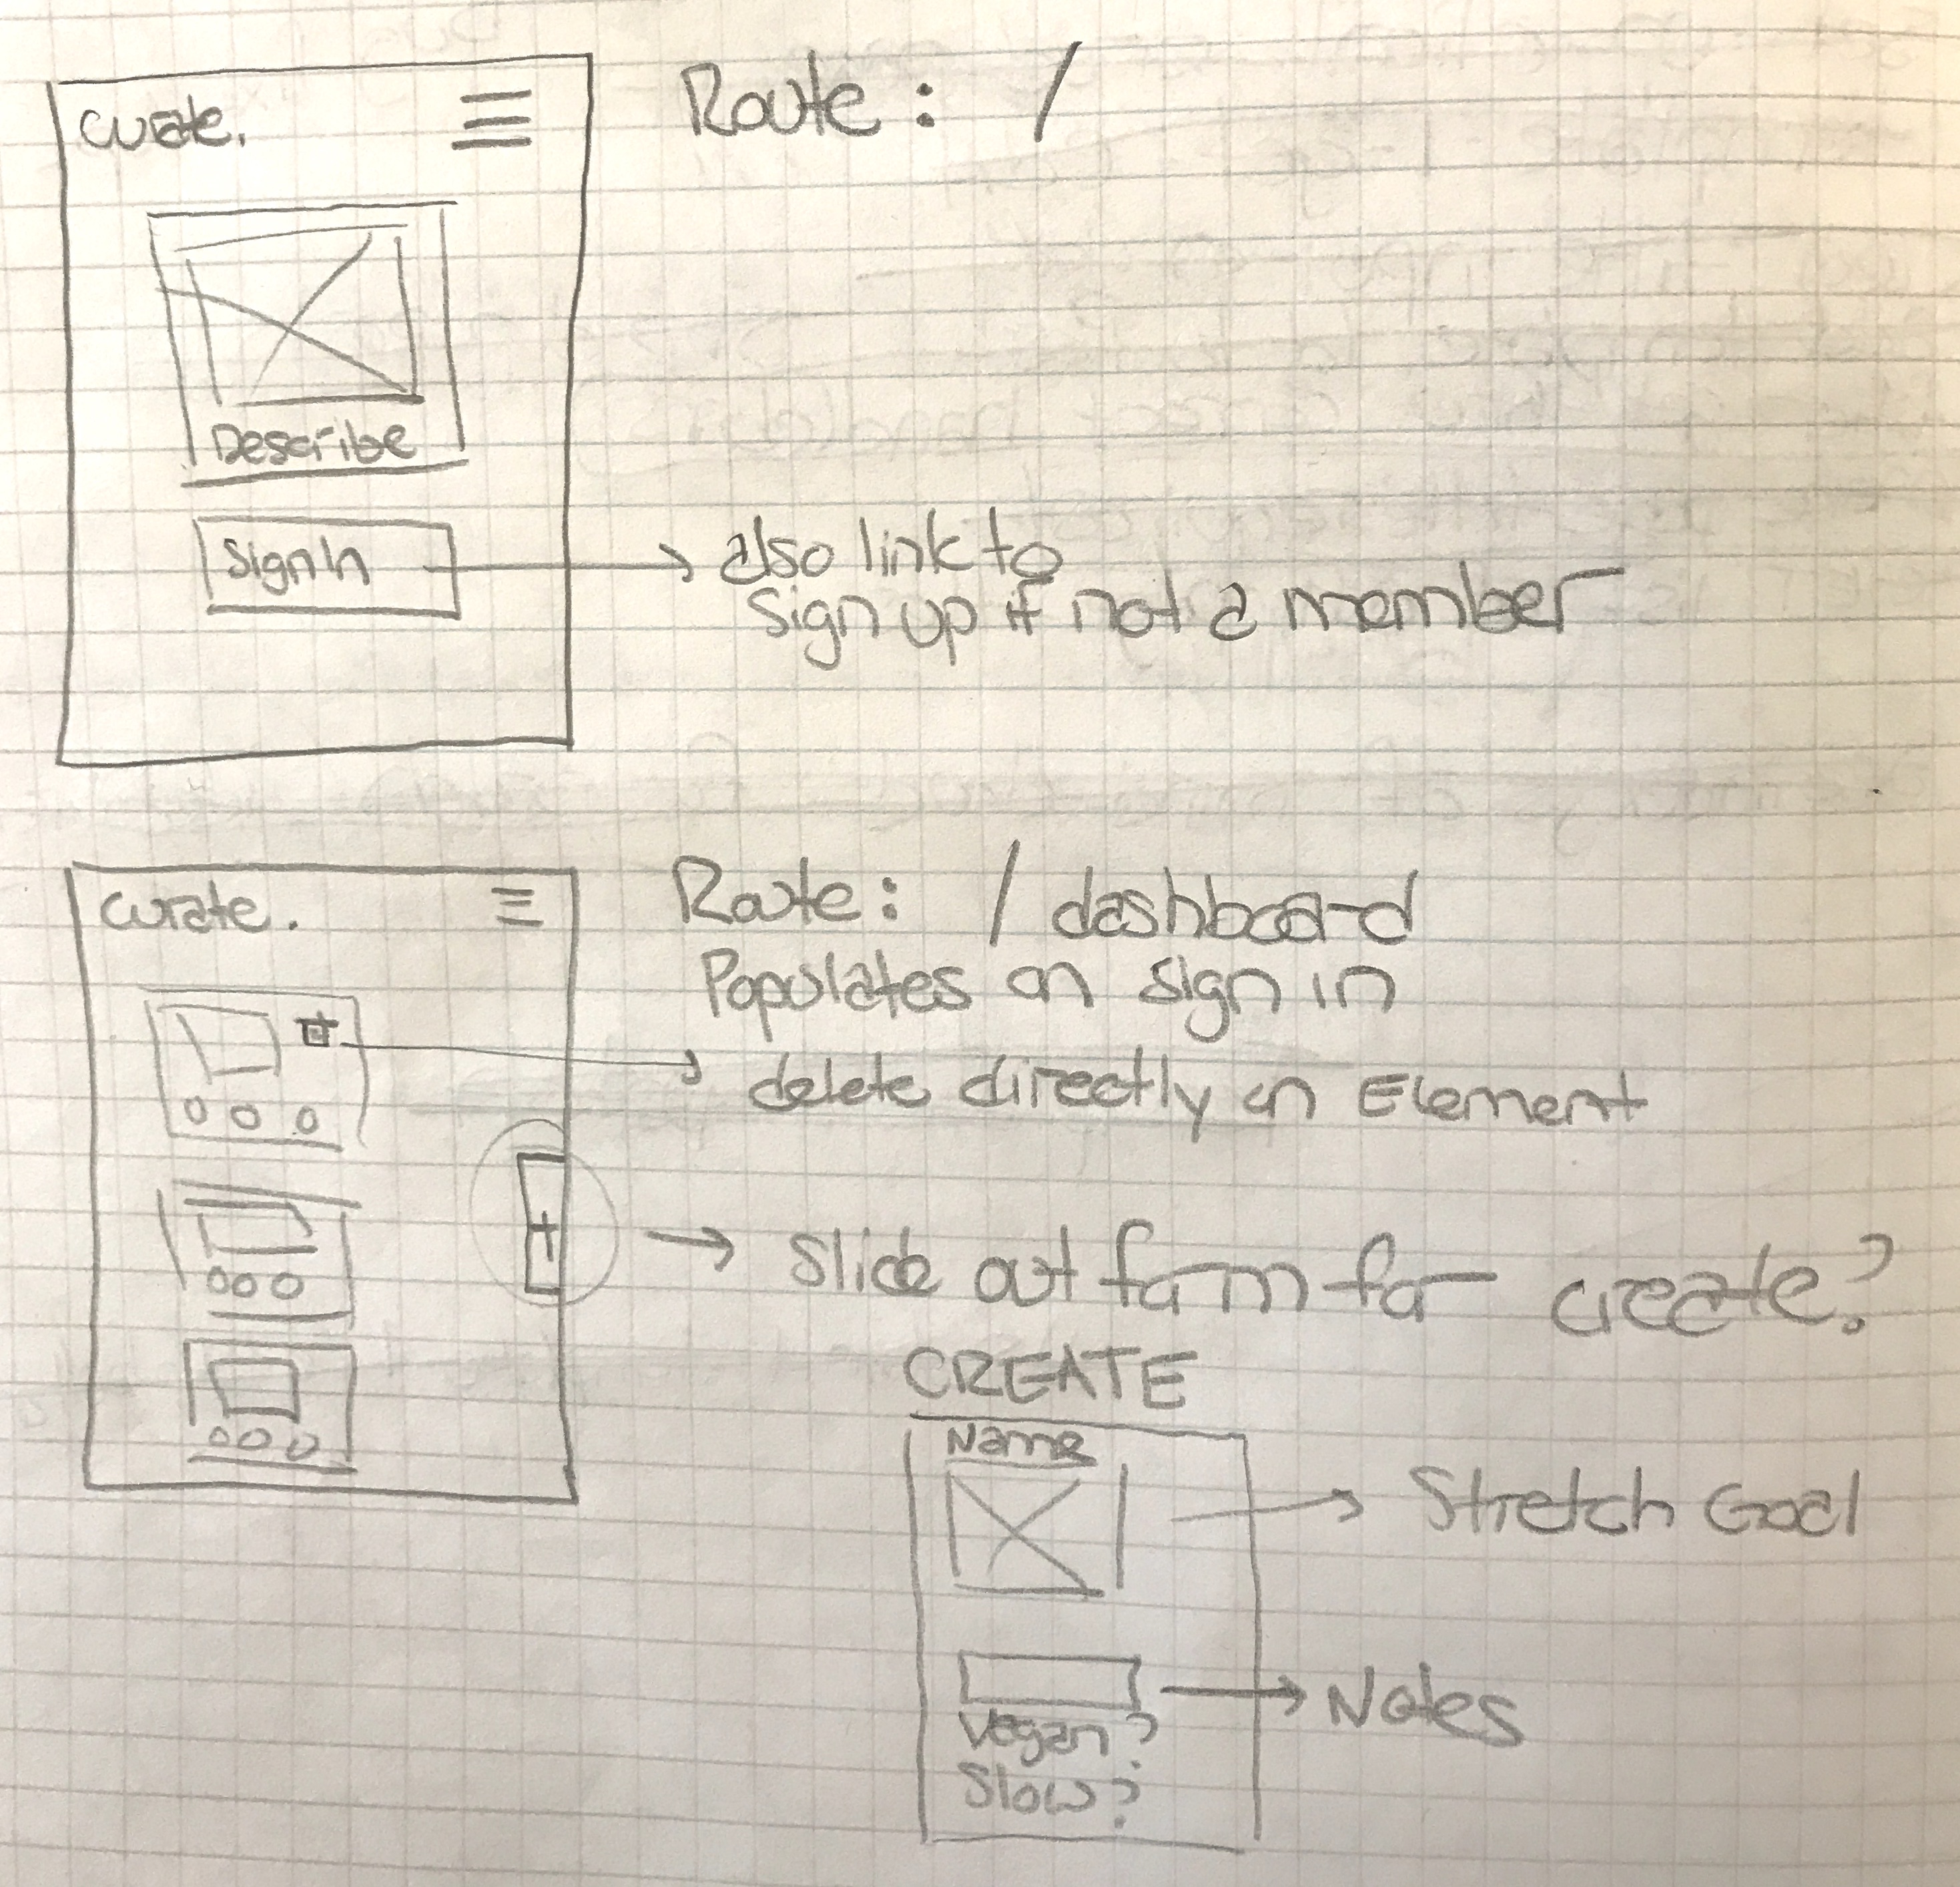 curate.
Route: /
Describe
Sign In
also link to
Sign up if not a member
curate.
Route: / dashboard
Populates on sign in
delete directly on Element
+
Slide out form for create?
CREATE
Name
Stretch Goal
Notes
Vegan?
Slow?